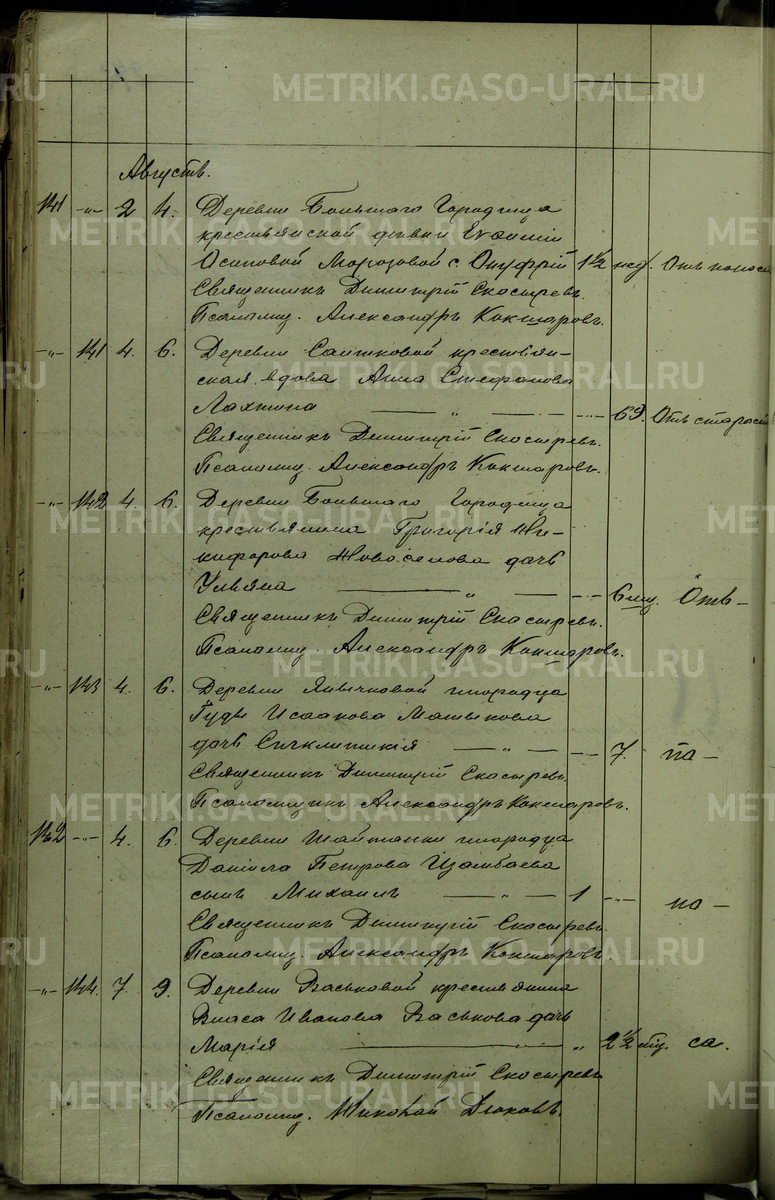 METRIKI.GASO-URAL.RU
Августъ.
141 -„- 2 4. Деревни Большаго Городища
крестьянской дѣвки Евѳиміи
Осиповой Морозовой с. Онуфрій 1½ нед. Отъ поноса
Священникъ Димитрій Скосыревъ.
Псаломщ. Александръ Кокшаровъ.
-„- 141 4. 6. Деревни Саитковой крестьян-
ская вдова Анна Стефанова
Лахтина — „ — - 69. Отъ старости
Священникъ Димитрій Скосыревъ.
Псаломщ. Александръ Кокшаровъ.
-„- 142 4. 6. Деревни Большаго Городища
крестьянина Григорія Ни-
кифорова Новоселова дочь
Ульяна — „ — - 6 мц. Отъ -
Священникъ Димитрій Скосыревъ.
Псаломщ. Александръ Кокшаровъ.
-„- 143 4. 6. инородца
Исаакова
дочь Сигклитикія — „ — - 7. по -
Священникъ Димитрій Скосыревъ.
Псаломщикъ Александръ Кокшаровъ.
142 -„- 4. 6. Деревни Шайтанки инородца
Даніила Петрова
сынъ Михаилъ — „ — 1 - но -
Священникъ Димитрій Скосыревъ.
Псаломщ. Александръ Кокшаровъ.
-„- 144. 7. 9. Деревни Васьковой крестьянина
Власа Иванова Васькова дочь
Марія — „ 2½ мц. са.
Священникъ Димитрій Скосыревъ
Псаломщ. Николай Дюковъ.